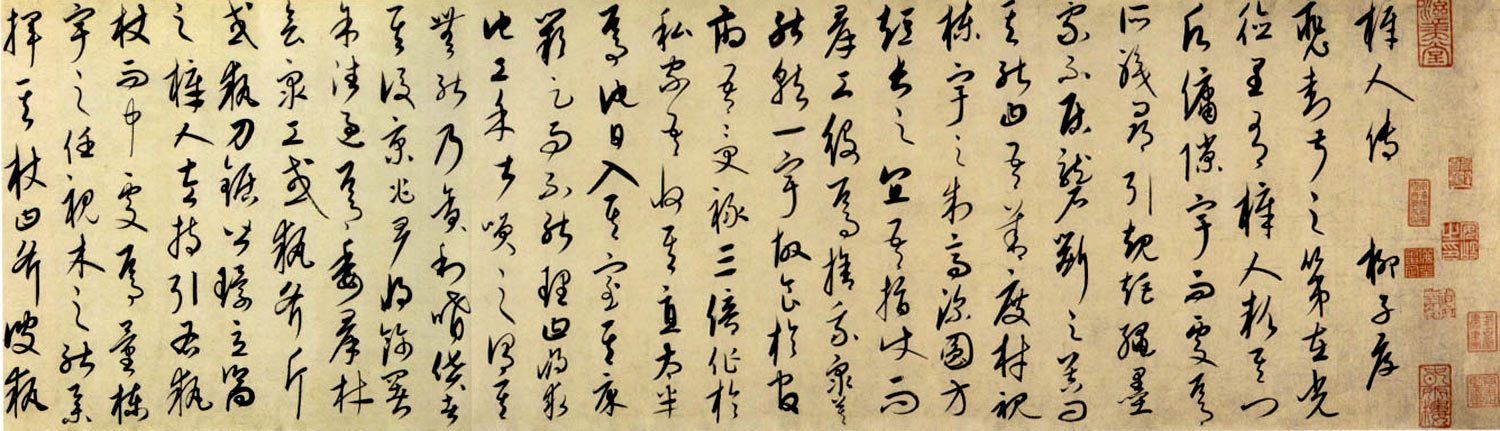 梓人傳 柳子厚
裴封叔之第在光
德里有梓人款其門
願傭隙宇而處焉
所職尋引規矩繩墨
家不居礱斲之器問
其能曰吾善度材視
棟宇之制高深圓方
短長之宜吾指使而
群工役焉捨我衆莫
能就一宇故食於官
府吾受祿三倍作於
私家吾收其直太半
焉他日入其室其床
闕足而不能理曰將求
他工余甚笑之謂其
無能乃貪利嗜貨者
其後京兆尹將飾署
余往過焉委群材
會衆工或執斧斤
或執刀鋸皆環立嚮
之梓人左持引右執
杖而中處焉量棟
宇之任視木之能舉
揮其杖曰斧彼執